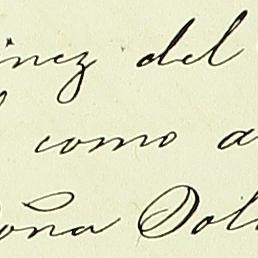 inez del
como a
oña Dol